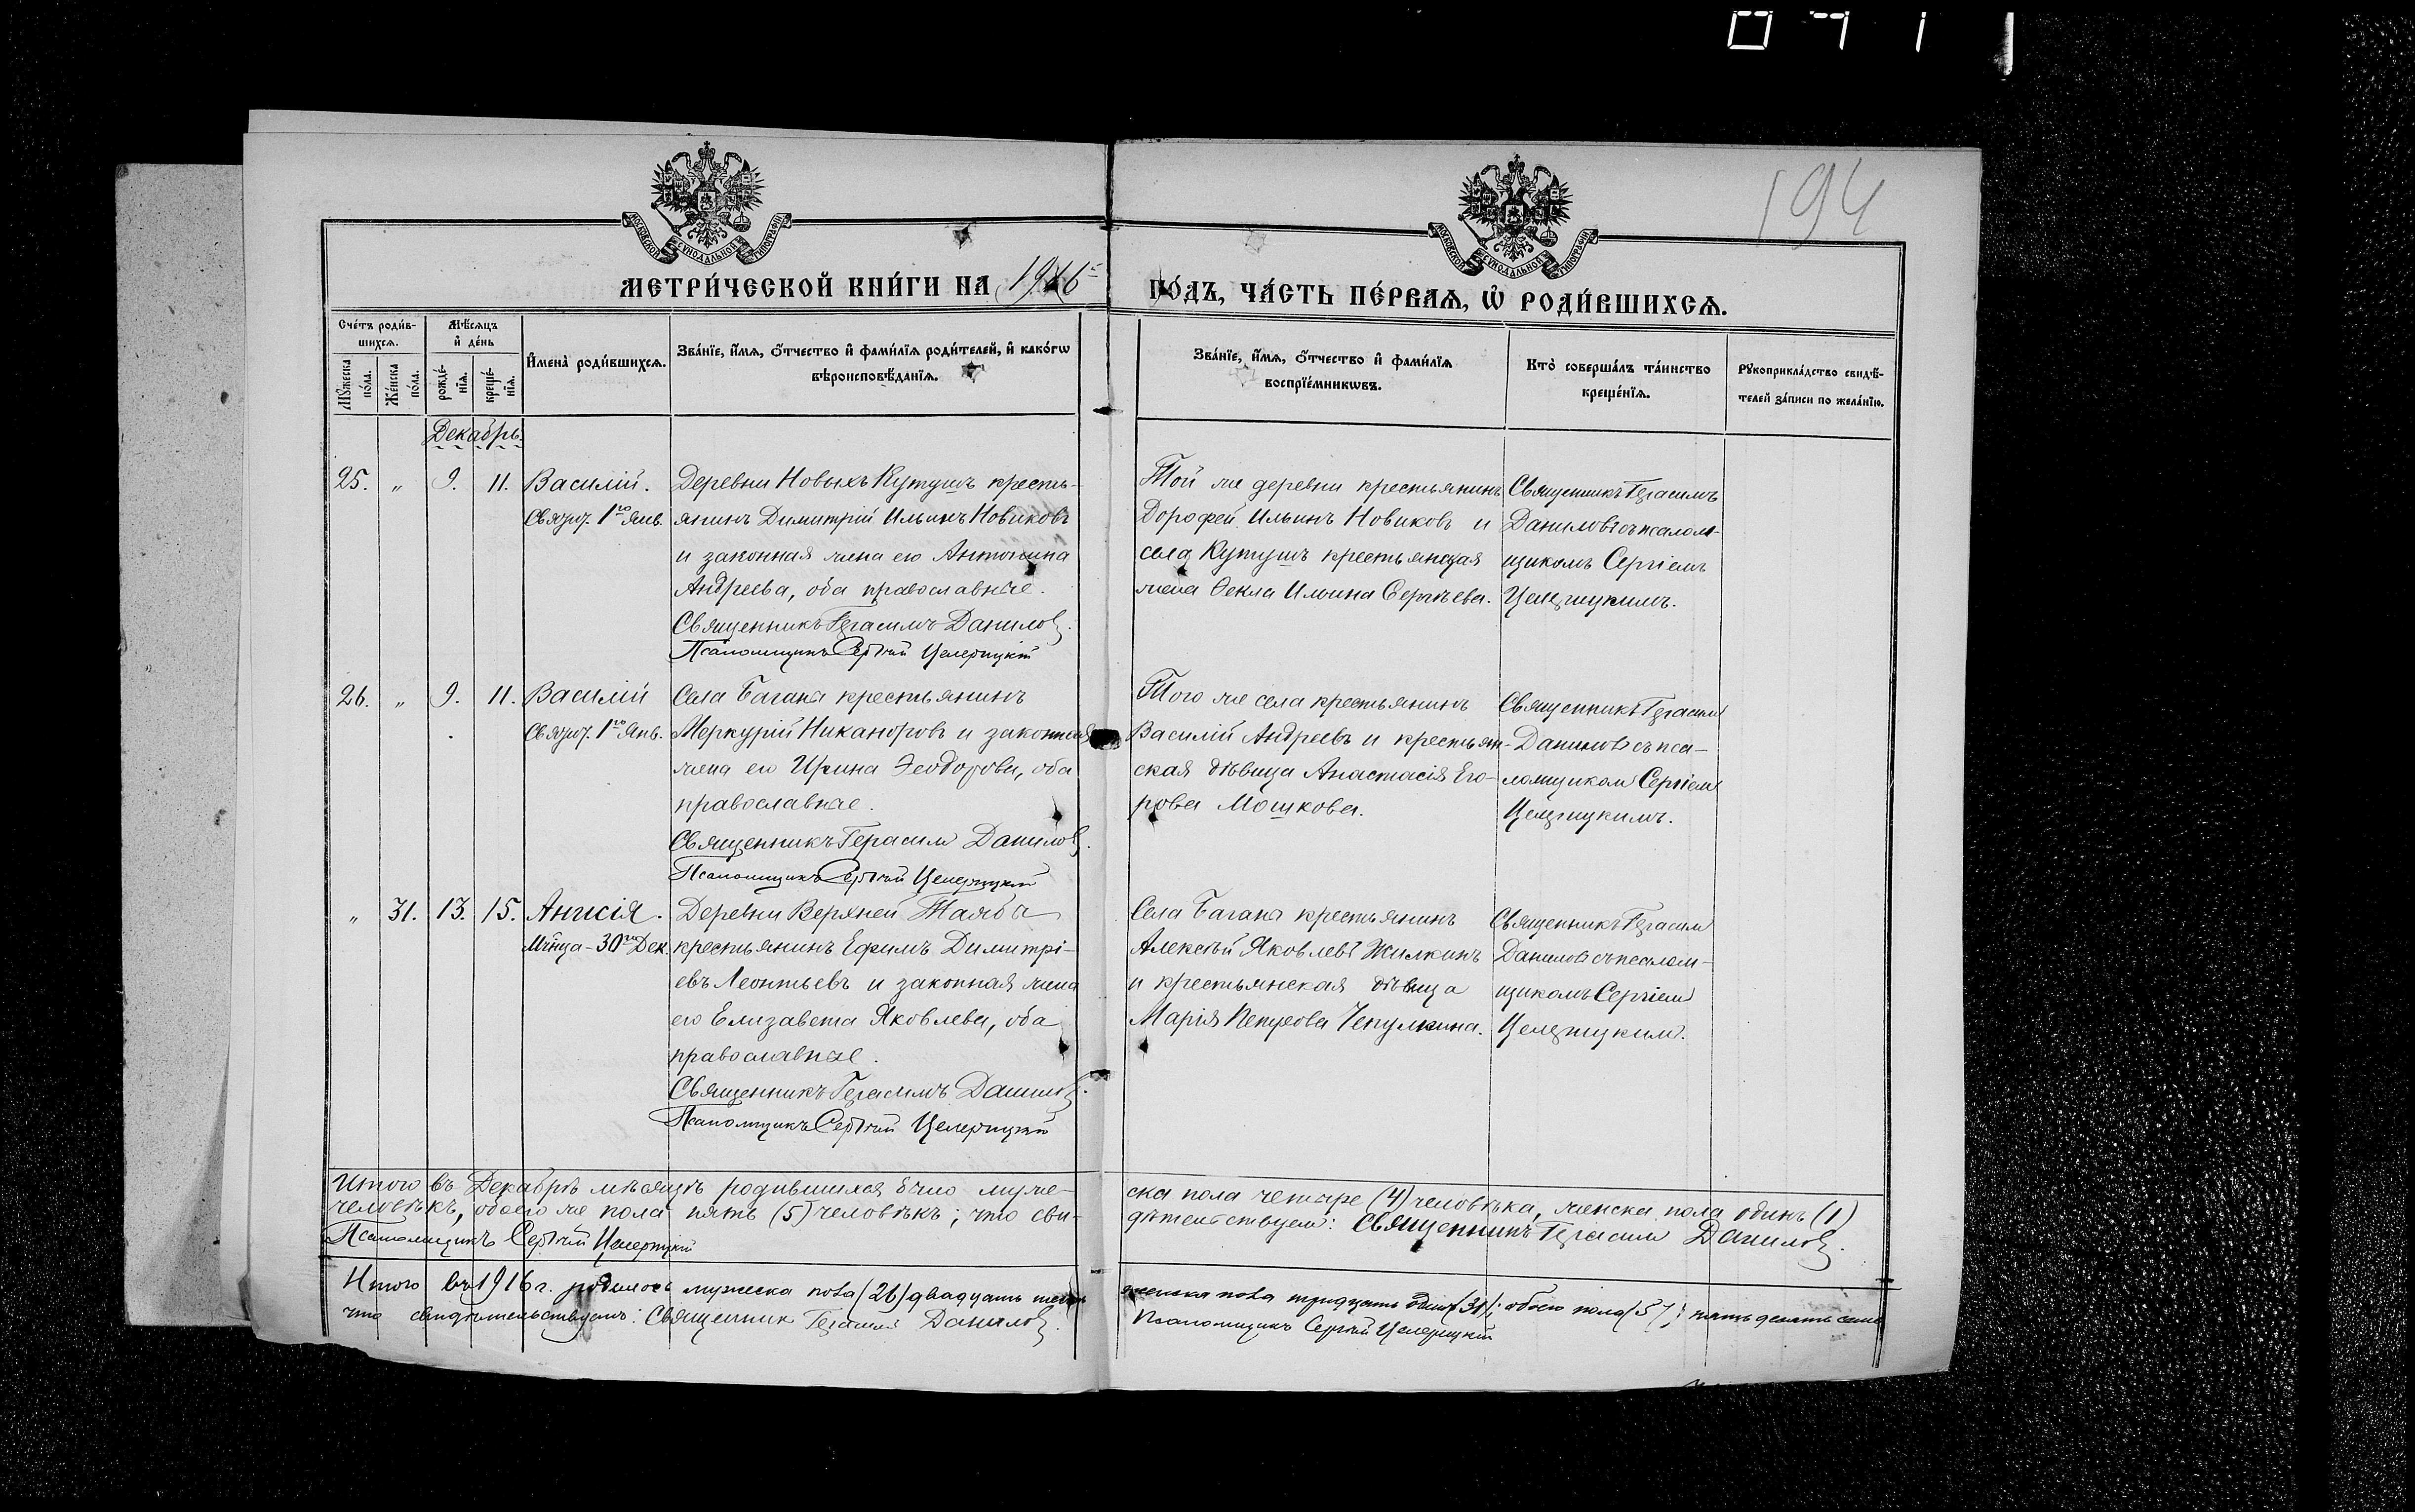 194
МОСКОВСКОЙ СѴНОДАЛЬНОЙ ТИПОГРАФІИ
МОСКОВСКОЙ СѴНОДАЛЬНОЙ ТИПОГРАФІИ
МЕТРИ́ЧЕСКОЙ КНИ́ГИ НА 1916 го́дъ, ЧА́СТЬ ПЕ́РВАѦ, Ѡ РОДИ́ВШИХСѦ.
Сче́тъ роди́вшихсѧ.
Мꙋ́жеска по́ла.
Же́нска по́ла.
Мѣ́сѧцъ и҆ де́нь
рожде́нїѧ.
креще́нїѧ.
И҆мена̀ роди́вшихсѧ.
Зва́нїе, и҆́мѧ, ѻ҆́тчество и҆ фами́лїѧ роди́телей, и҆ како́гѡ
вѣроисповѣ́данїѧ.
Зва́нїе, и҆́мѧ, ѻ҆́тчество и҆ фами́лїѧ
воспрїе́мникѡвъ.
Кто̀ соверша́лъ та́инство
креще́нїѧ.
Рꙋкоприкла́дство свидѣ́-
телей за́писи по жела́нїю.
Декабрь.
25. „ 9. 11. Василій.
Свят. 1го Янв.
Деревни Новыхъ Кутушъ кресть-
янинъ Димитрій Ильинъ Новиковъ
и законная жена его Антонина
Андреева, оба православные.
Священникъ Герасимъ Данилов.
Псаломщикъ Сергѣй Целерицкій
Той же деревни крестьянинъ
Дорофей Ильинъ Новиковъ и
села Кутушъ крестьянская
жена Ѳекла Ильина Сергѣева.
Священникъ Герасимъ
Даниловъ съ псалом-
щикомъ Сергіемъ
Целерицкимъ.
26. „ 9. 11. Василій
Свят. 1го Янв.
Села Багана крестьянинъ
Меркурій Никаноровъ и законная
жена его Ирина Ѳеодорова, оба
православные.
Священникъ Герасим Данилов.
Псаломщикъ Сергѣй Целерицкій
Того же села крестьянинъ
Василій Андреевъ и крестьян-
ская дѣвица Анастасія Его-
рова Мошкова.
Священникъ Герасим
Даниловъ съ пса-
ломщиком Сергіем
Целерицкимъ.
„ 31. 13. 15. Анисія.
Мч̃нца - 30го Дек.
Деревни Верхней Таябы
крестьянинъ Ефимъ Димитрі-
евъ Леонтьевъ и законная жена
его Елизавета Яковлева, оба
православные.
Священникъ Герасимъ Данилов.
Псаломщикъ Сергѣй Целерицкій
Села Багана крестьянинъ
Алексѣй Яковлевъ Жилкинъ
и крестьянская дѣвица
Марія Чепулкина.
Священникъ Герасим
Даниловъ съ псалом-
щикомъ Сергіем
Целерицким.
Итого въ Декабрѣ мѣсяцѣ родившихся было муже-
ска пола четыре (4) человѣка, женска пола одинъ (1)
человѣкъ, обоего же пола пять (5) человѣкъ; что сви-
дѣтельствуем: Священникъ Герасим Данилов.
Псаломщикъ Сергѣй Целерицкій
Итого въ 1916 г. родилось мужеска пола (26) двадцать шесть
женска пола тридцать один (31); обоего пола (57) пятьдесять семь
что свидѣтельствуемъ: Священник Герасим Данилов.
Псаломщикъ Сергѣй Целерицкій